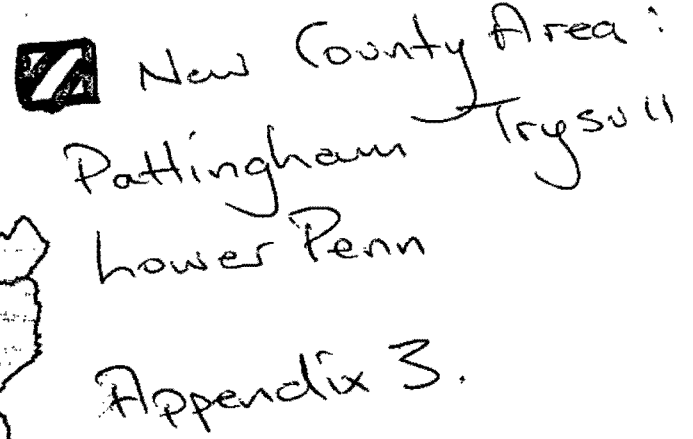 New County Area:
Pattingham Trysull
Lower Penn
Appendix 3.